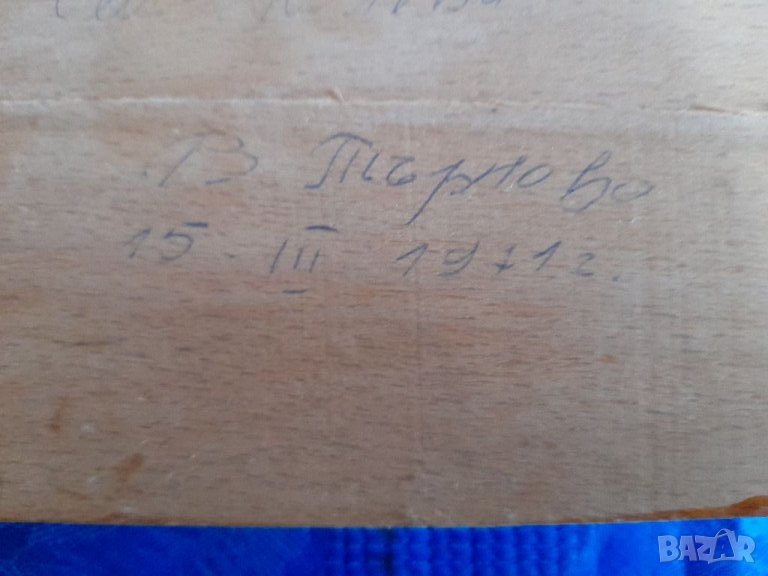 В Търново
15. III 1971г.
BAZAR